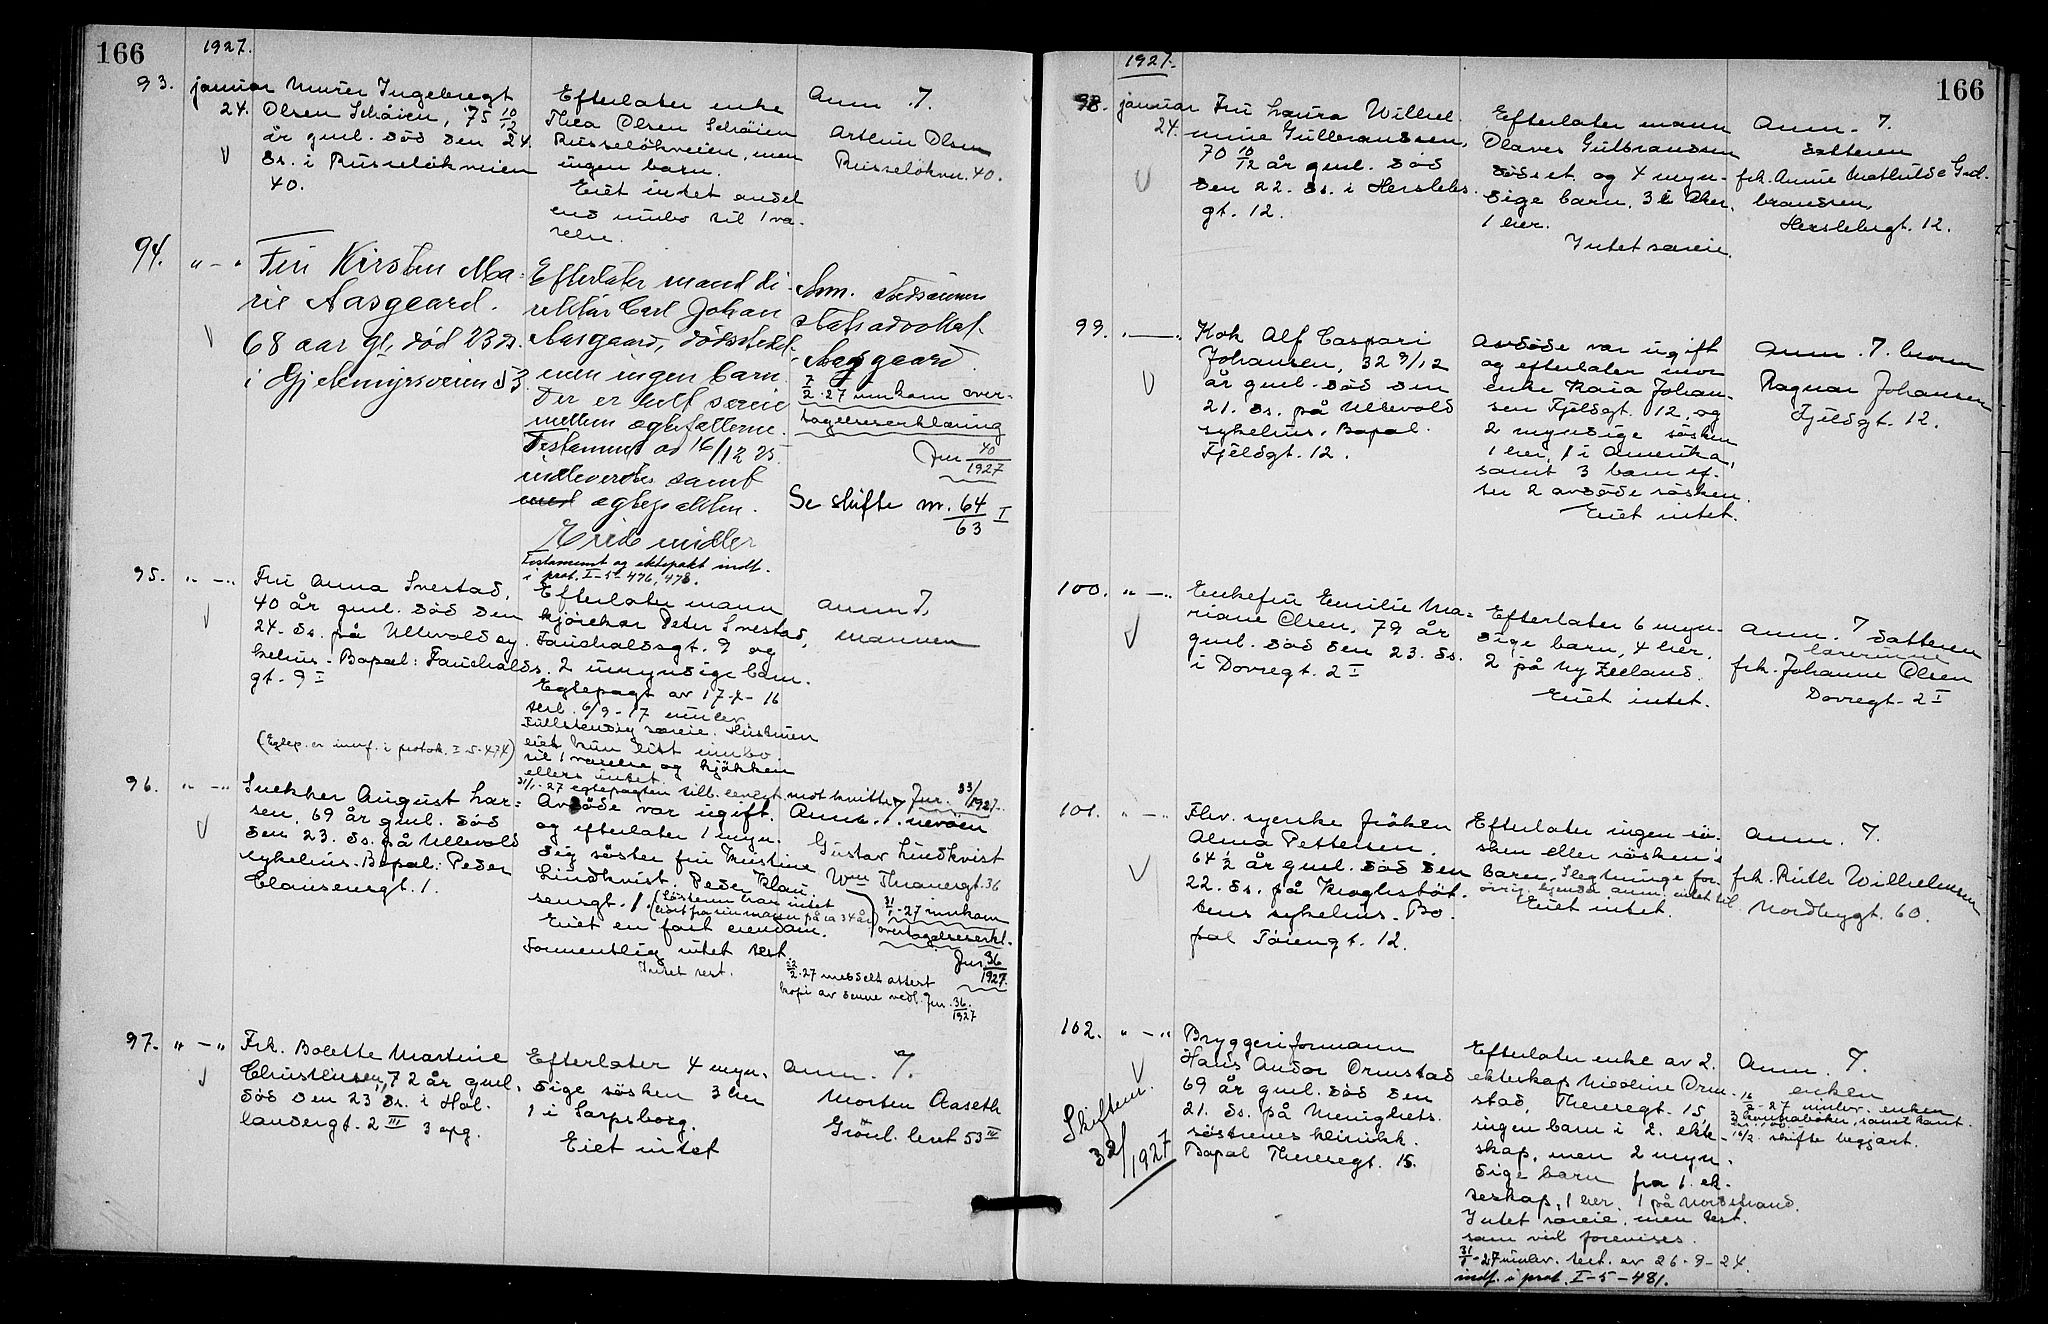 166
1927.
93. januar 24.
Murer Ingebregt
Olsen Schøien, 75 10/12
år gml. død den 24.
ds. i Russeløkveien
40.
Efterlater enke
Thea Olsen Schøien
Russeløkveien, men
ingen barn.
Eiet intet andet
end innbo til 1 væ-
relse.
Anm. 7.
Arthur Olsen
Russeløkvn. 40.
94. " - "
Fru Kirsten Ma-
rie Aasgaard.
68 aar gl, død 23 ds.
i Gjetemyrsveien 53
Efterlater mand di-
rektør Carl Johan
Aasgaard, dødsstedet,
men ingen barn.
Der er helt særeie
mellem ægtefællerne.
Testament ad 16/12 25
indleverdes samt
med ægtepakten.
Eiede midler
Testament og ektepakt indt.
i prot. I-5-476, 478.
Anm.
statsadvokat
Aasgaard.
7/2-27 innkom over-
tagelseserklæring
Jnr 40/1927
Se skifte nr. 64/63 I
95. " - "
Fru Anna Svestad,
40 år gml. død den
24. ds. på Ullevold sy
kehus. Bopæl: Fauchalds
gt. 9 I
(Egtep. er innf. i protok. I-5-474)
Efterlater mann
kjørekar Peder Svestad,
Fauchaldsgt. 9 og
2 umyndige barn.
Egtepagt av 17-4-16
terl. 6/9-17 innlev
Fullstendig særeie. Hustruen
eiet kun litt innbo
til 1 værelse og kjøkken
ellers intet.
31/1-27 egtepagten tilb. levert mot kvitter. Jnr. 33/1927.
Anm. 7.
Mannen
96. " - "
Snekker August Lar-
sen, 69 år gml. død
den 23. ds. på Ullevold
sykehus. Bopæl: Peder
Clausensgt. 1.
Avdøde var ugift.
og efterlater 1 myn-
dig søster fru Kristine
Lindkvist, Peder Klau
sensgt. 1. (Søsteren har intet
hørt fra sin mann på ca 34 år)
Eiet en fast eiendom.
Formentlig intet test.
Intet test.
Anm. nevøen
Gustav Lindkvist
Wm Thranesgt. 36
31/1-27 innkom
overtagelseserkl.
Jnr 36/1927.
2-27 meddelt attest
kopi av denne vedl. Jnr. 36/1927
97. " - "
Frk. Bolette Martine
Christensen, 72 år gml.
død den 23 ds. i Hol-
landergt. 2 III 3 opg.
Efterlater 4 myn-
dige søsken 3 her
1 i Sarpsborg.
Eiet intet
Anm. 7.
Morten Aaseth
Grønl. leret 53 III
1927.
166
98. januar 24.
Fru Laura Wilhel-
mine Gulbrandsen,
70 10/12 år gml. død
den 22. ds. i Herslebs
gt. 12.
Efterlater mann
Olaves Gulbrandsen
dødsst. og 4 myn-
dige barn. 3 i Aker.
1 her.
Intet særeie.
Anm. 7.
datteren
frk. Anne Mathilde Gul-
brandsen,
Herslebsgt. 12.
99. " - "
Kok Alf Caspari
Johansen, 32 9/12
år gml. død den
21. ds. på Ullevold
sykehus. Bopæl.
Fjeldgt. 12.
Avdøde var ugift
og efterlater mor
enke Kaia Johan-
sen Fjeldgt. 12, og
2 myndige søsken
1 her, 1 i Amerika,
samt 3 barn ef-
ter 2 avdøde søsken.
Eiet intet.
Anm. 7. broren
Ragnar Johansen
Fjeldgt. 12.
100. " - "
Enkefru Emilie Ma-
riane Olsen, 79 år
gml. død den 23. ds.
i Dovregt. 2 I
Efterlater 6 myn-
dige barn, 4 her,
2 på Ny Zeeland.
Eiet intet.
Anm. 7 datteren
lærerinne
frk. Johanne Olsen
Dovregt. 2 I
101. " - "
Fhv. syerske frøken
Alma Pettersen.
64 1/2 år gml. død den
22. ds. på Kroghstøt-
tens sykehus. Bo-
pæl Tøiengt. 12.
Efterlater ingen sø-
sken eller søsken's
barn. Slegtninge for-
øvrig kjender anm. intet til
Eiet intet.
Anm. 7.
frk. Ruth Wilhelmsen
Nordbygt. 60.
102. " - "
Skiftenr. 32/1927
Bryggeriformann
Hans Andor Ormstad
69 år gml. død den
21. ds. på Menighets-
søstrenes klinikk.
Bopæl Theresegt. 15.
Efterlater enke av 2.
ekteskap Nicoline Orm-
stad, Theresegt. 15,
ingen barn i 2. ekte-
skap, men 2 myn-
dige barn fra 1. ek-
teskap, 1 her. 1 på Nordstrand.
Intet særeie, men test.
som vil forevises.
31/1-27 innlev. test. av 26-9-24.
innf. i prot. I-5-481.
Anm. 7.
enken
16/2-27 innlev. enken
3 kontrabøker, samt kont.
16/2. skifte begjært.